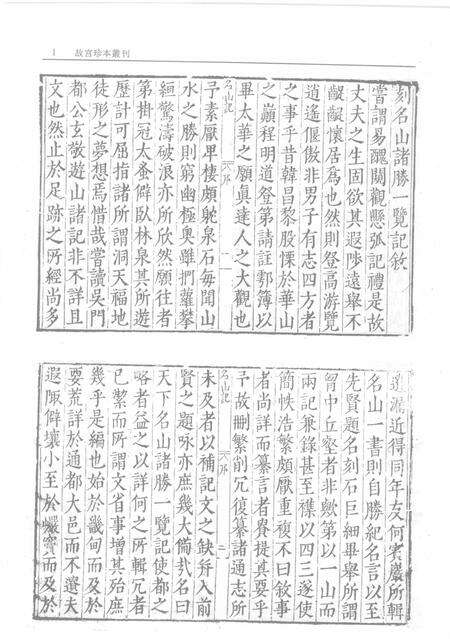 1 故宮珍本叢刊
刻名山諸勝一覽記敘
嘗謂易醜闚觀懸弧記禮是故
丈夫之生固欲其遐陟遠舉不
齪齪懷居為也然則登高游覽
逍遙偃傲非男子有志四方者
之事乎昔韓昌黎股慄於華山
之巔程明道登第請註鄠簿以
畢太華之願真達人之大觀也
名山記 序 一
予素厭卑棲頗躭泉石每聞山
水之勝則窮幽極奧雖捫蘿攀
絙驚濤破浪亦所欣然願往者
第掛冠太蚤僻臥林泉其所遊
歷計可屈指諸所謂洞天福地
徒形之夢想焉惜哉嘗讀吳門
都公玄敬遊山諸記非不詳且
文也然止於足跡之所經尚多
遺漏近得同年友何賓巖所輯
名山一書則自勝紀名言以至
先賢題名刻石巨細畢舉所謂
胷中丘壑者非歟第以一山而
兩記兼錄甚至襍以四三遂使
簡帙浩繁頗厭重複不曰敘事
者尚詳而纂言者貴提其要乎
予故刪繁削冗復纂諸通志所
名山記 序 二
未及者以補記文之缺并入前
賢之題咏亦庶幾大備哉名曰
天下名山諸勝一覽記使都之
略者益之以詳何之所輯冗者
已絜而所謂文省事增其殆庶
幾乎是編也始於畿甸而及於
要荒詳於通都大邑而不遺夫
遐陬僻壤小至於巖竇而及於